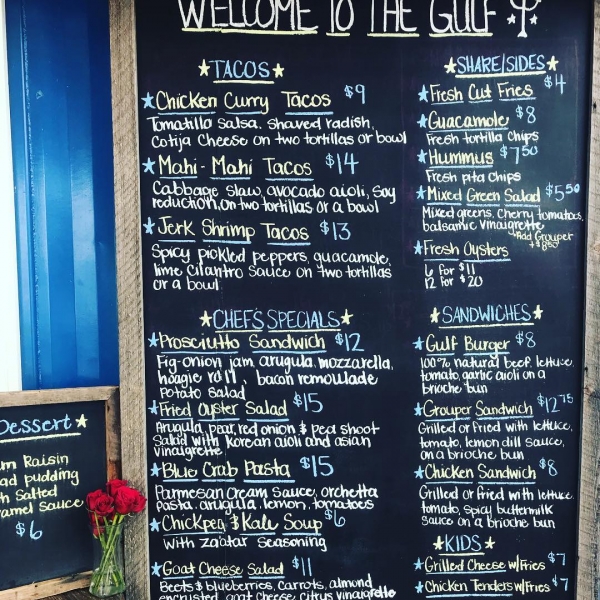 WELCOME TO THE GULF
TACOS
Chicken Curry Tacos $9
Tomatillo salsa, shaved radish,
Cotija Cheese on two tortillas or bowl
Mahi-Mahi Tacos $14
Cabbage slaw, avocado aioli, soy
reduction, on two tortillas or a bowl
Jerk Shrimp Tacos $13
Spicy pickled peppers, guacamole,
lime cilantro sauce on two tortillas
or a bowl
CHEF'S SPECIALS
Prosciutto Sandwich $12
Fig-onion jam, arugula, mozzarella,
hoagie roll, bacon remoulade
Potato salad
Fried Oyster Salad $15
Arugula, pear, red onion & pea shoot
Salad with Korean aioli and asian
vinaigrette
Blue Crab Pasta $15
Parmesan Cream Sauce, orchetta
pasta, arugula, lemon, tomatoes
Chickpea & Kale Soup $6
with za'atar Seasoning
Goat Cheese Salad $11
Beets & blueberries, carrots, almond
encrusted goat cheese, citrus vinaigrette
SHARE/SIDES
Fresh Cut Fries $4
Guacamole $8
Fresh tortilla chips
Hummus $7.50
Fresh pita chips
Mixed Green Salad $5.50
Mixed greens, Cherry tomatoes,
balsamic vinaigrette
*Add Grouper
+$8.50
Fresh Oysters
6 for $11
12 for $20
SANDWICHES
Gulf Burger $8
100% natural beef, lettuce,
tomato, garlic aioli on a
brioche bun
Grouper Sandwich $12.75
Grilled or fried with lettuce,
tomato, lemon dill sauce,
on a brioche bun
Chicken Sandwich $8
Grilled or fried with lettuce,
tomato, spicy buttermilk
sauce on a brioche bun
KIDS
Grilled Cheese w/Fries $7
Chicken Tenders w/Fries $7
Dessert
um Raisin
ad pudding
th Salted
ramel sauce
$6